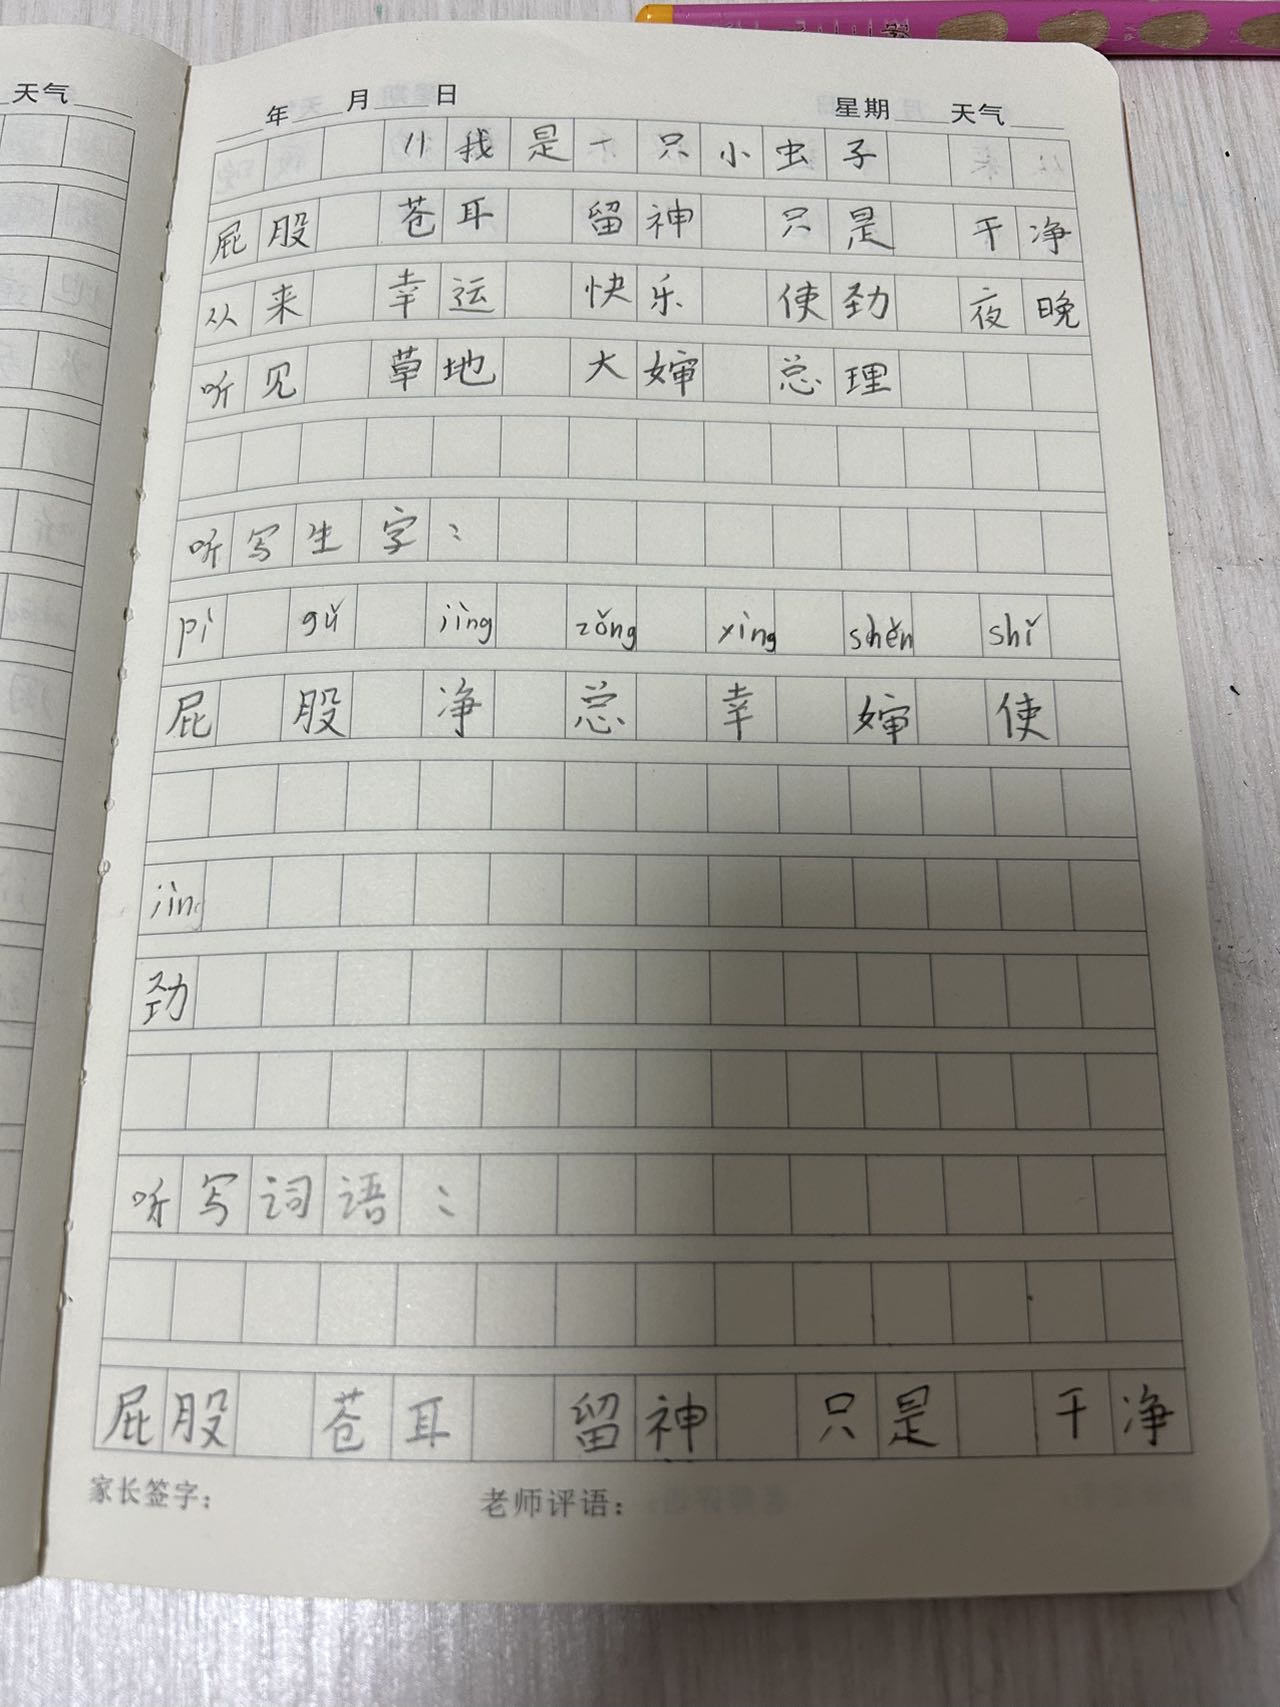 天气
年 月 日 星期 天气
11我是一只小虫子
屁股 苍耳 留神 只是 干净
从来 幸运 快乐 使劲 夜晚
听见 草地 大婶 总理
听写生字：
pì gǔ jìng zǒng xìng shěn shǐ
屁 股 净 总 幸 婶 使
jìng
劲
听写词语：
屁股 苍耳 留神 只是 干净
家长签字： 老师评语：